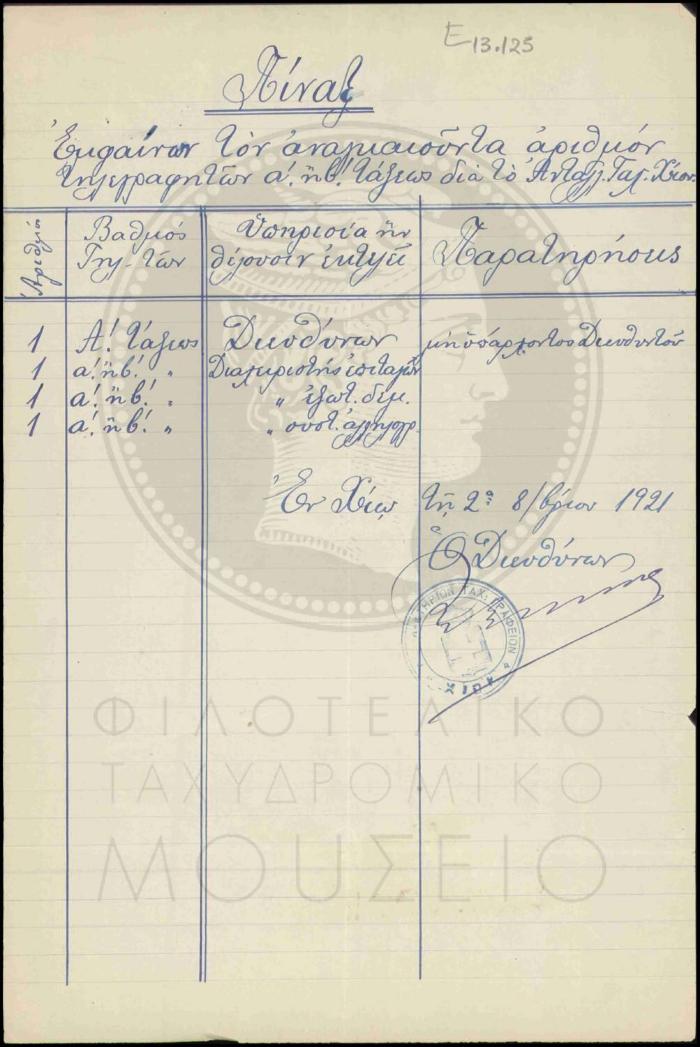 Ε 13.125
Πίναξ
Ἐμφαίνων τὸν ἀναγκαιοῦντα ἀριθμόν
τηλεγραφητῶν α! ἢ β! τάξεως διὰ τὸ Ἀνταλλ. Ταχ. Χίου.
Ἀριθμός
Βαθμός
Τηλ-τῶν
Ὑπηρεσία ἣν
θέλουσιν ἐκτελεῖ
Παρατηρήσεις
1 Α! τάξεως Διευθύνων μὴ ὑπάρχοντος Διευθυντοῦ
1 α! ἢ β! " Διαχειριστής ἐπιταγῶν
1 α! ἢ β! " " ἐξωτ. δεμ.
1 α! ἢ β! " " συστ. ἀλληλογρ.
Ἐν Χίῳ τῇ 2ᾳ 8/βρίου 1921
Ὁ Διευθύνων
ΤΑΧ. ΓΡΑΦΕΙΟΝ
ΧΙΟΥ
ΦΙΛΟΤΕΛΙΚΟ
ΤΑΧΥΔΡΟΜΙΚΟ
ΜΟΥΣΕΙΟ